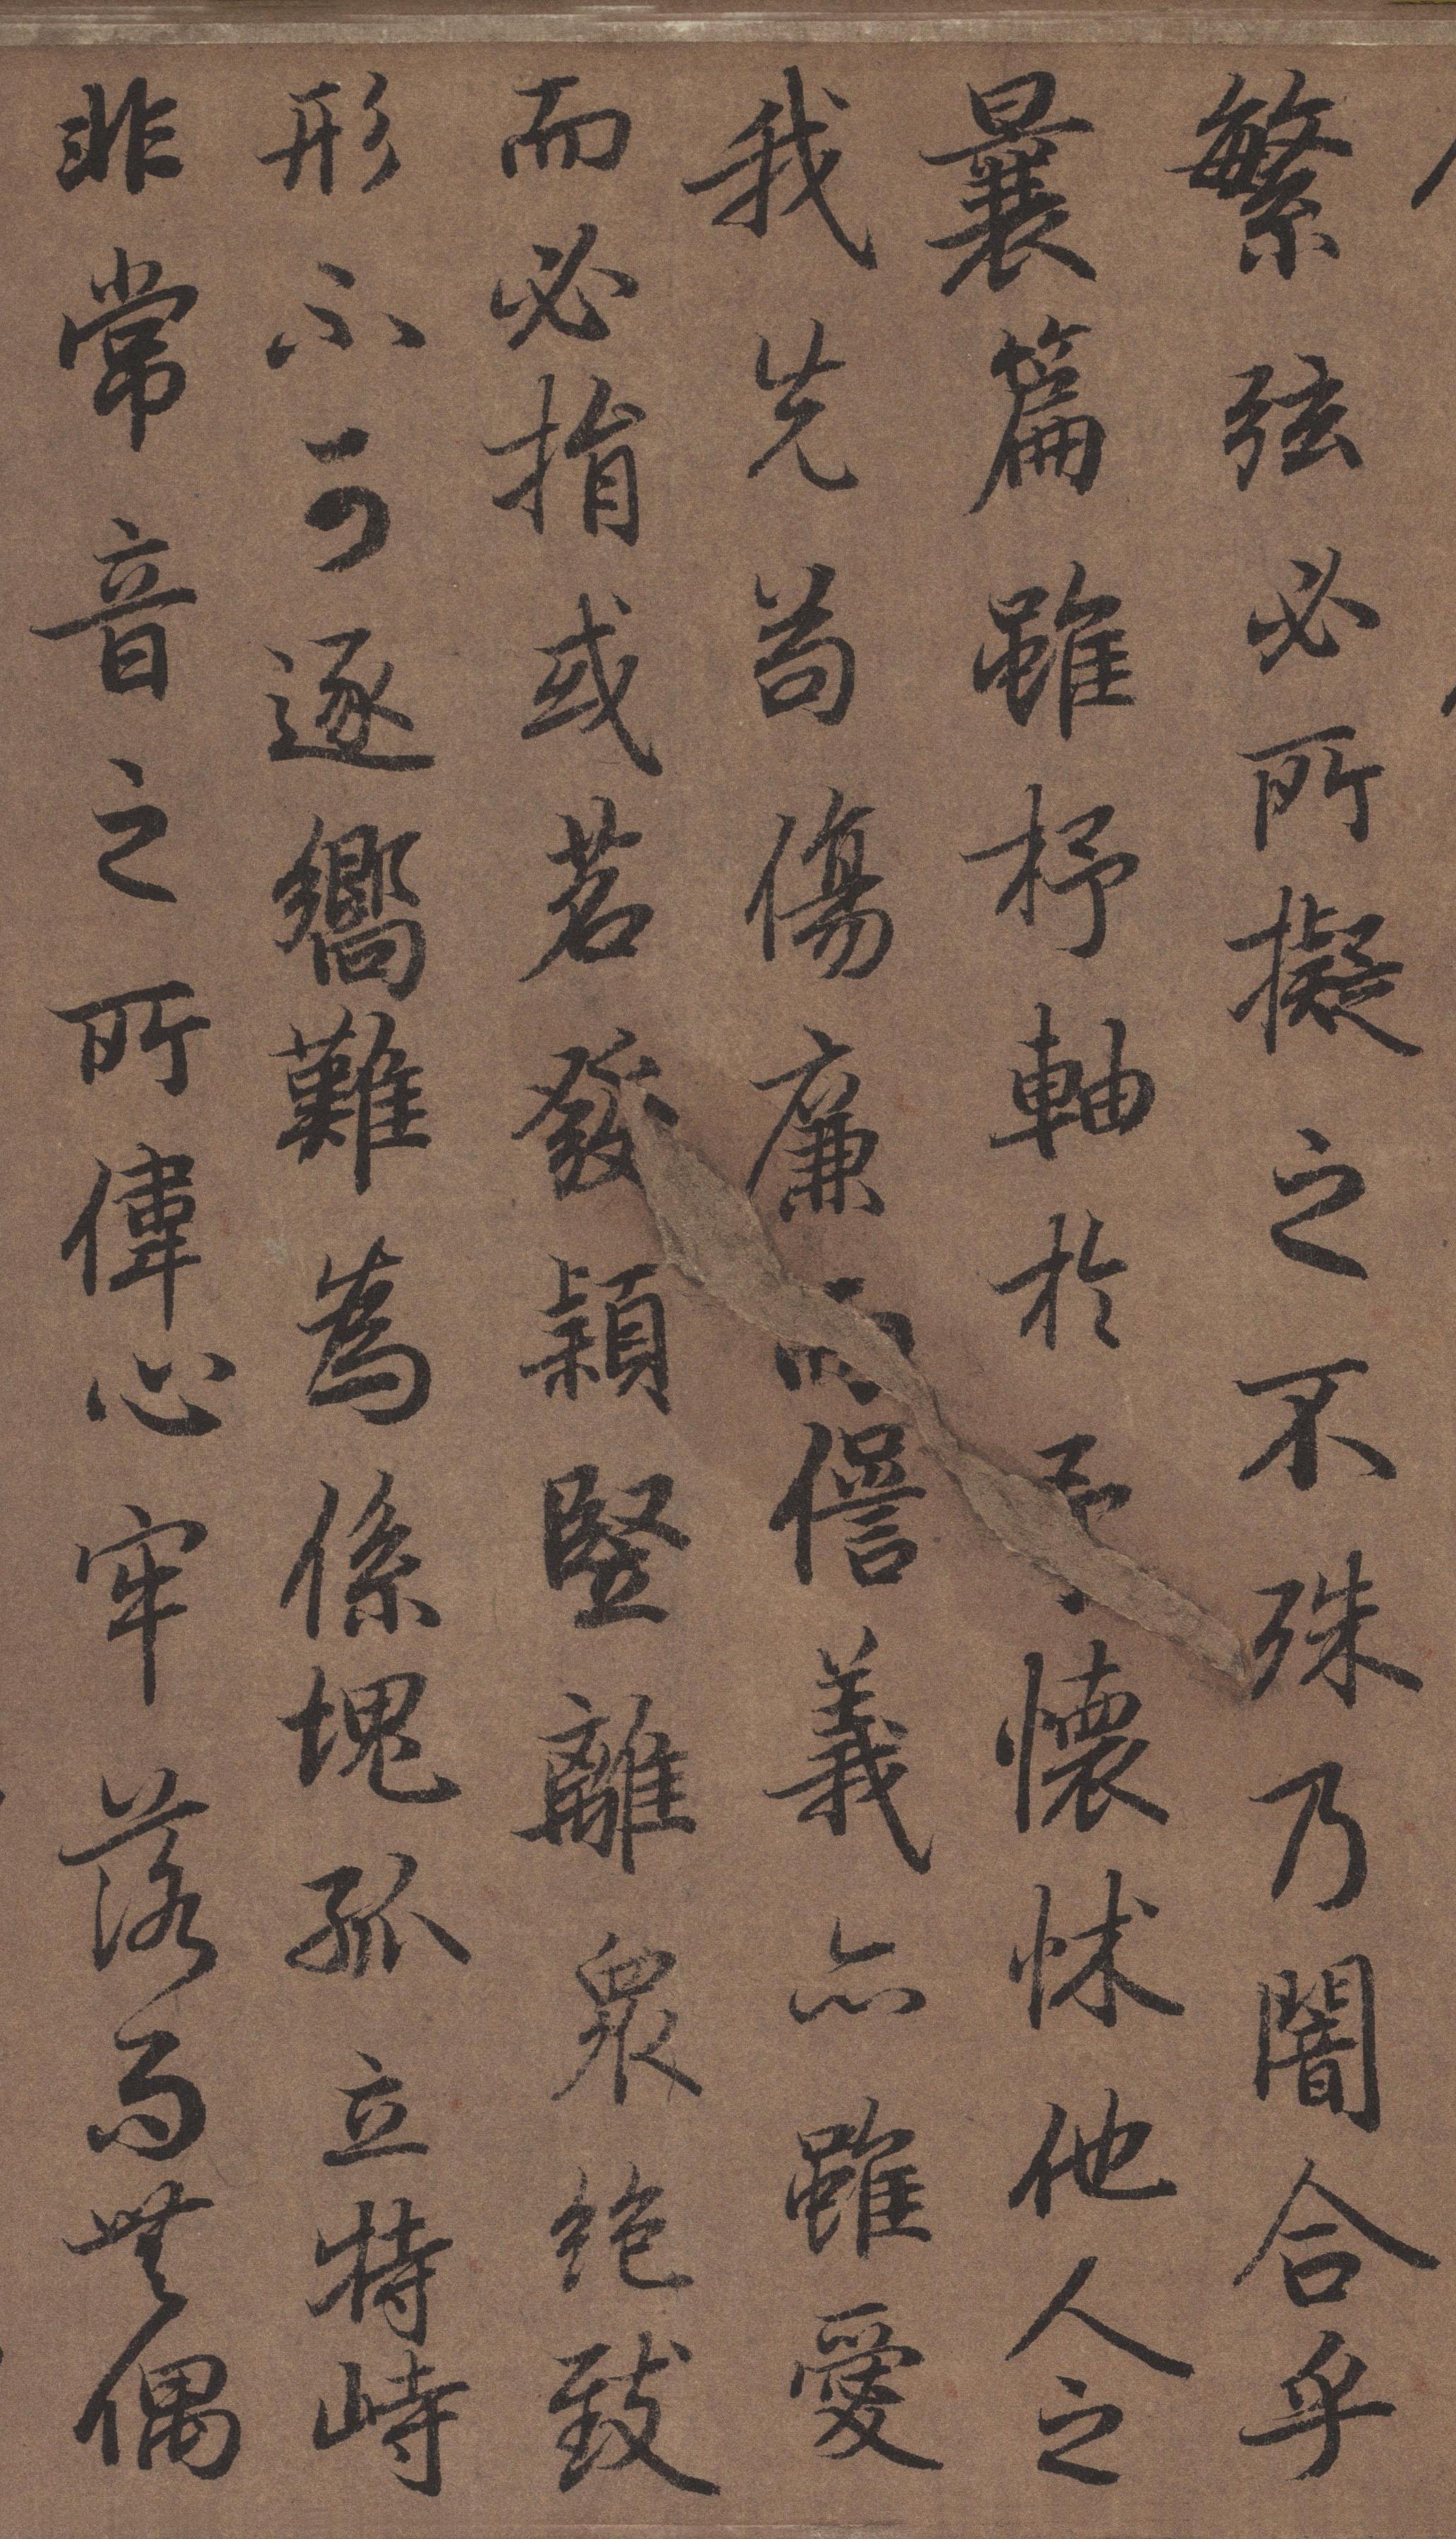 繁弦必所擬之不殊乃闇合乎
曩篇雖杼軸於予懷怵他人之
我先苟傷廉而僁義亦雖愛
而必捐或苕發穎竪離衆絶致
形不可逐嚮難為係塊孤立特峙
非常音之所偉心牢落而無偶